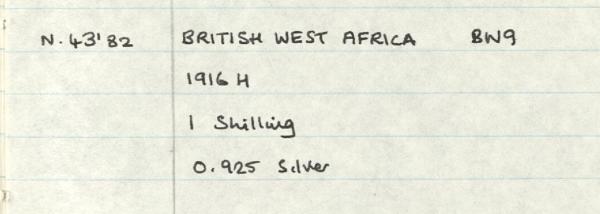 N.43'82 BRITISH WEST AFRICA BW9
1916 H
1 Shilling
0.925 Silver